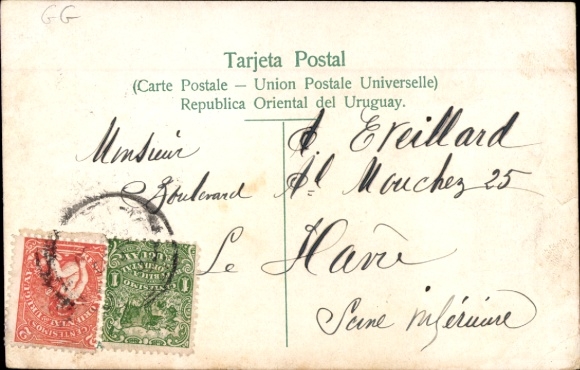 GG
Tarjeta Postal
(Carte Postale — Union Postale Universelle)
Republica Oriental del Uruguay.
Monsieur E. Eveillard
Boulevard Al Mouchez 25
Le Havre
Seine inférieure